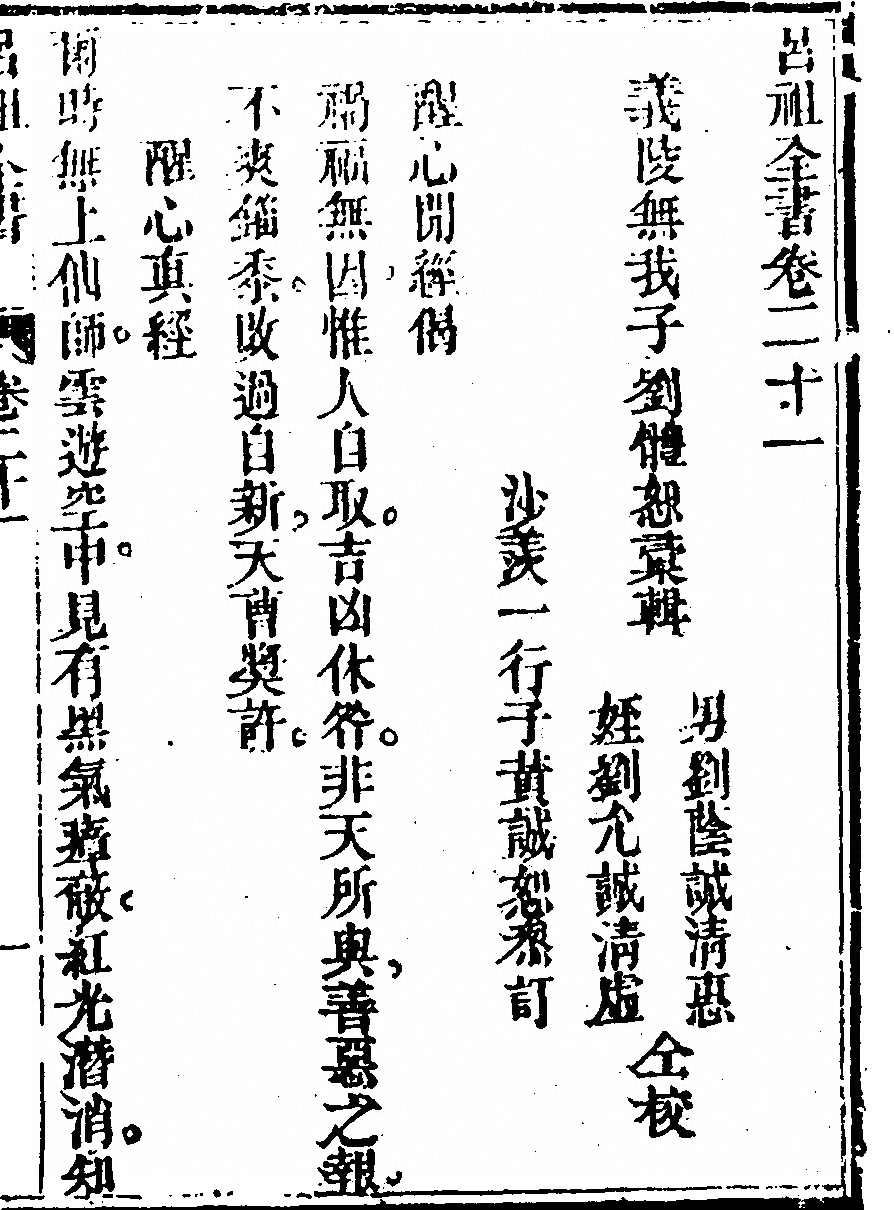 呂祖全書卷二十一
義陵無我子劉體恕彙輯
男劉蔭誠清惠
姪劉允誠清虛
仝校
沙羨一行子黃誠恕叅訂
醒心開經偈
禍福無因惟人自取。吉凶休咎。非天所與，善惡之報，
不爽錙黍。改過自新，天曹獎許。
醒心真經
爾時無上仙師。雲遊空中。見有黑氣瘴蔽。紅光潛消。知
呂祖全書
卷二十一
一